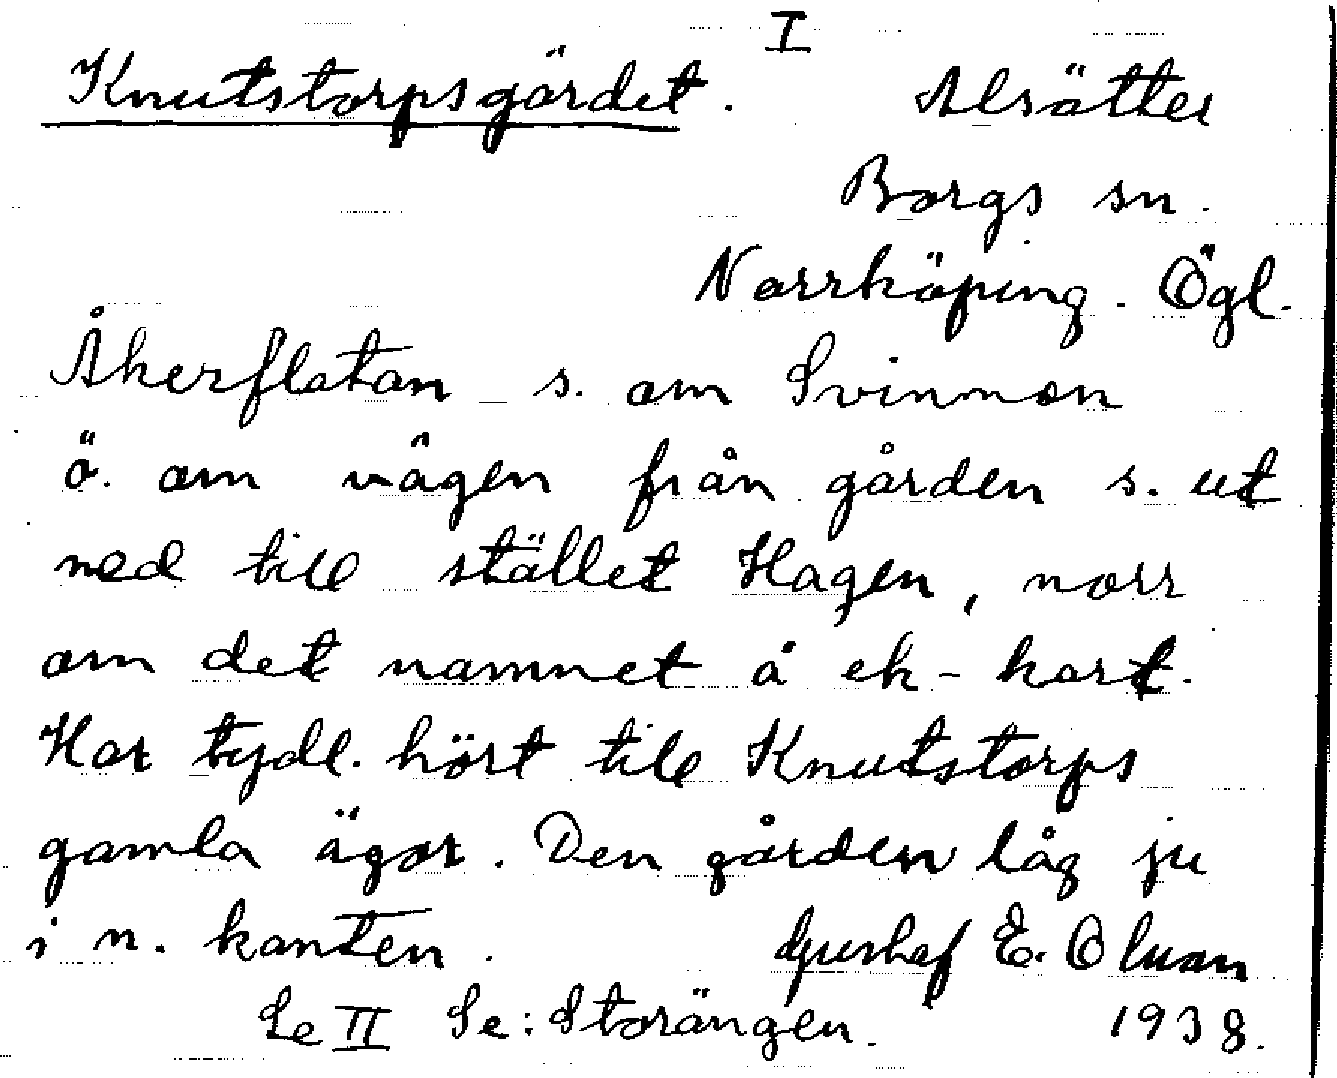 I
Knutstorpsgärdet. Alsätter
Borgs sn.
Norrköping. Ögl.
Åkerflatan s. om Svinmon
ö. om vägen från gården s. ut
ned till stället Hagen, norr
om det namnet å ek-kart.
Har tydl. hört till Knutstorps
gamla ägor. Den gården låg ju
i n. kanten. E. Olson
Se II Se: Storängen. 1938.